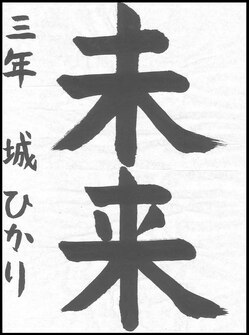 未来
三年 城ひかり